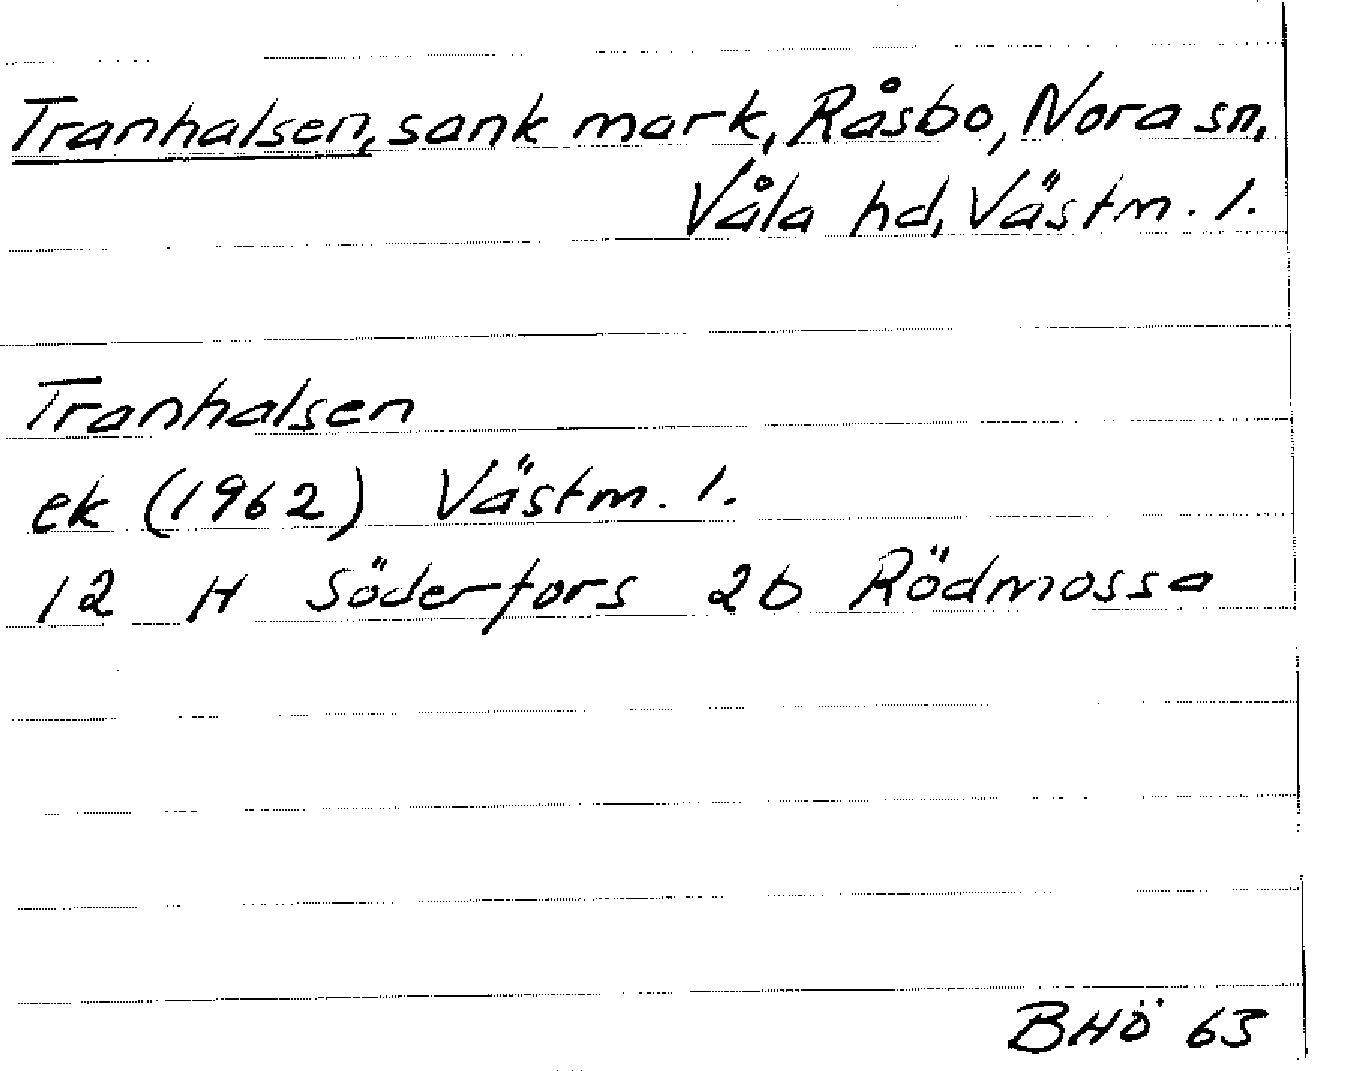 Tranhalsen, sank mark, Råsbo, Nora sn,
Våla hd, Västm. l.
Tranhalsen
ek (1962) Västm. l.
12 H Söderfors 2b Rödmossa
BHÖ 63